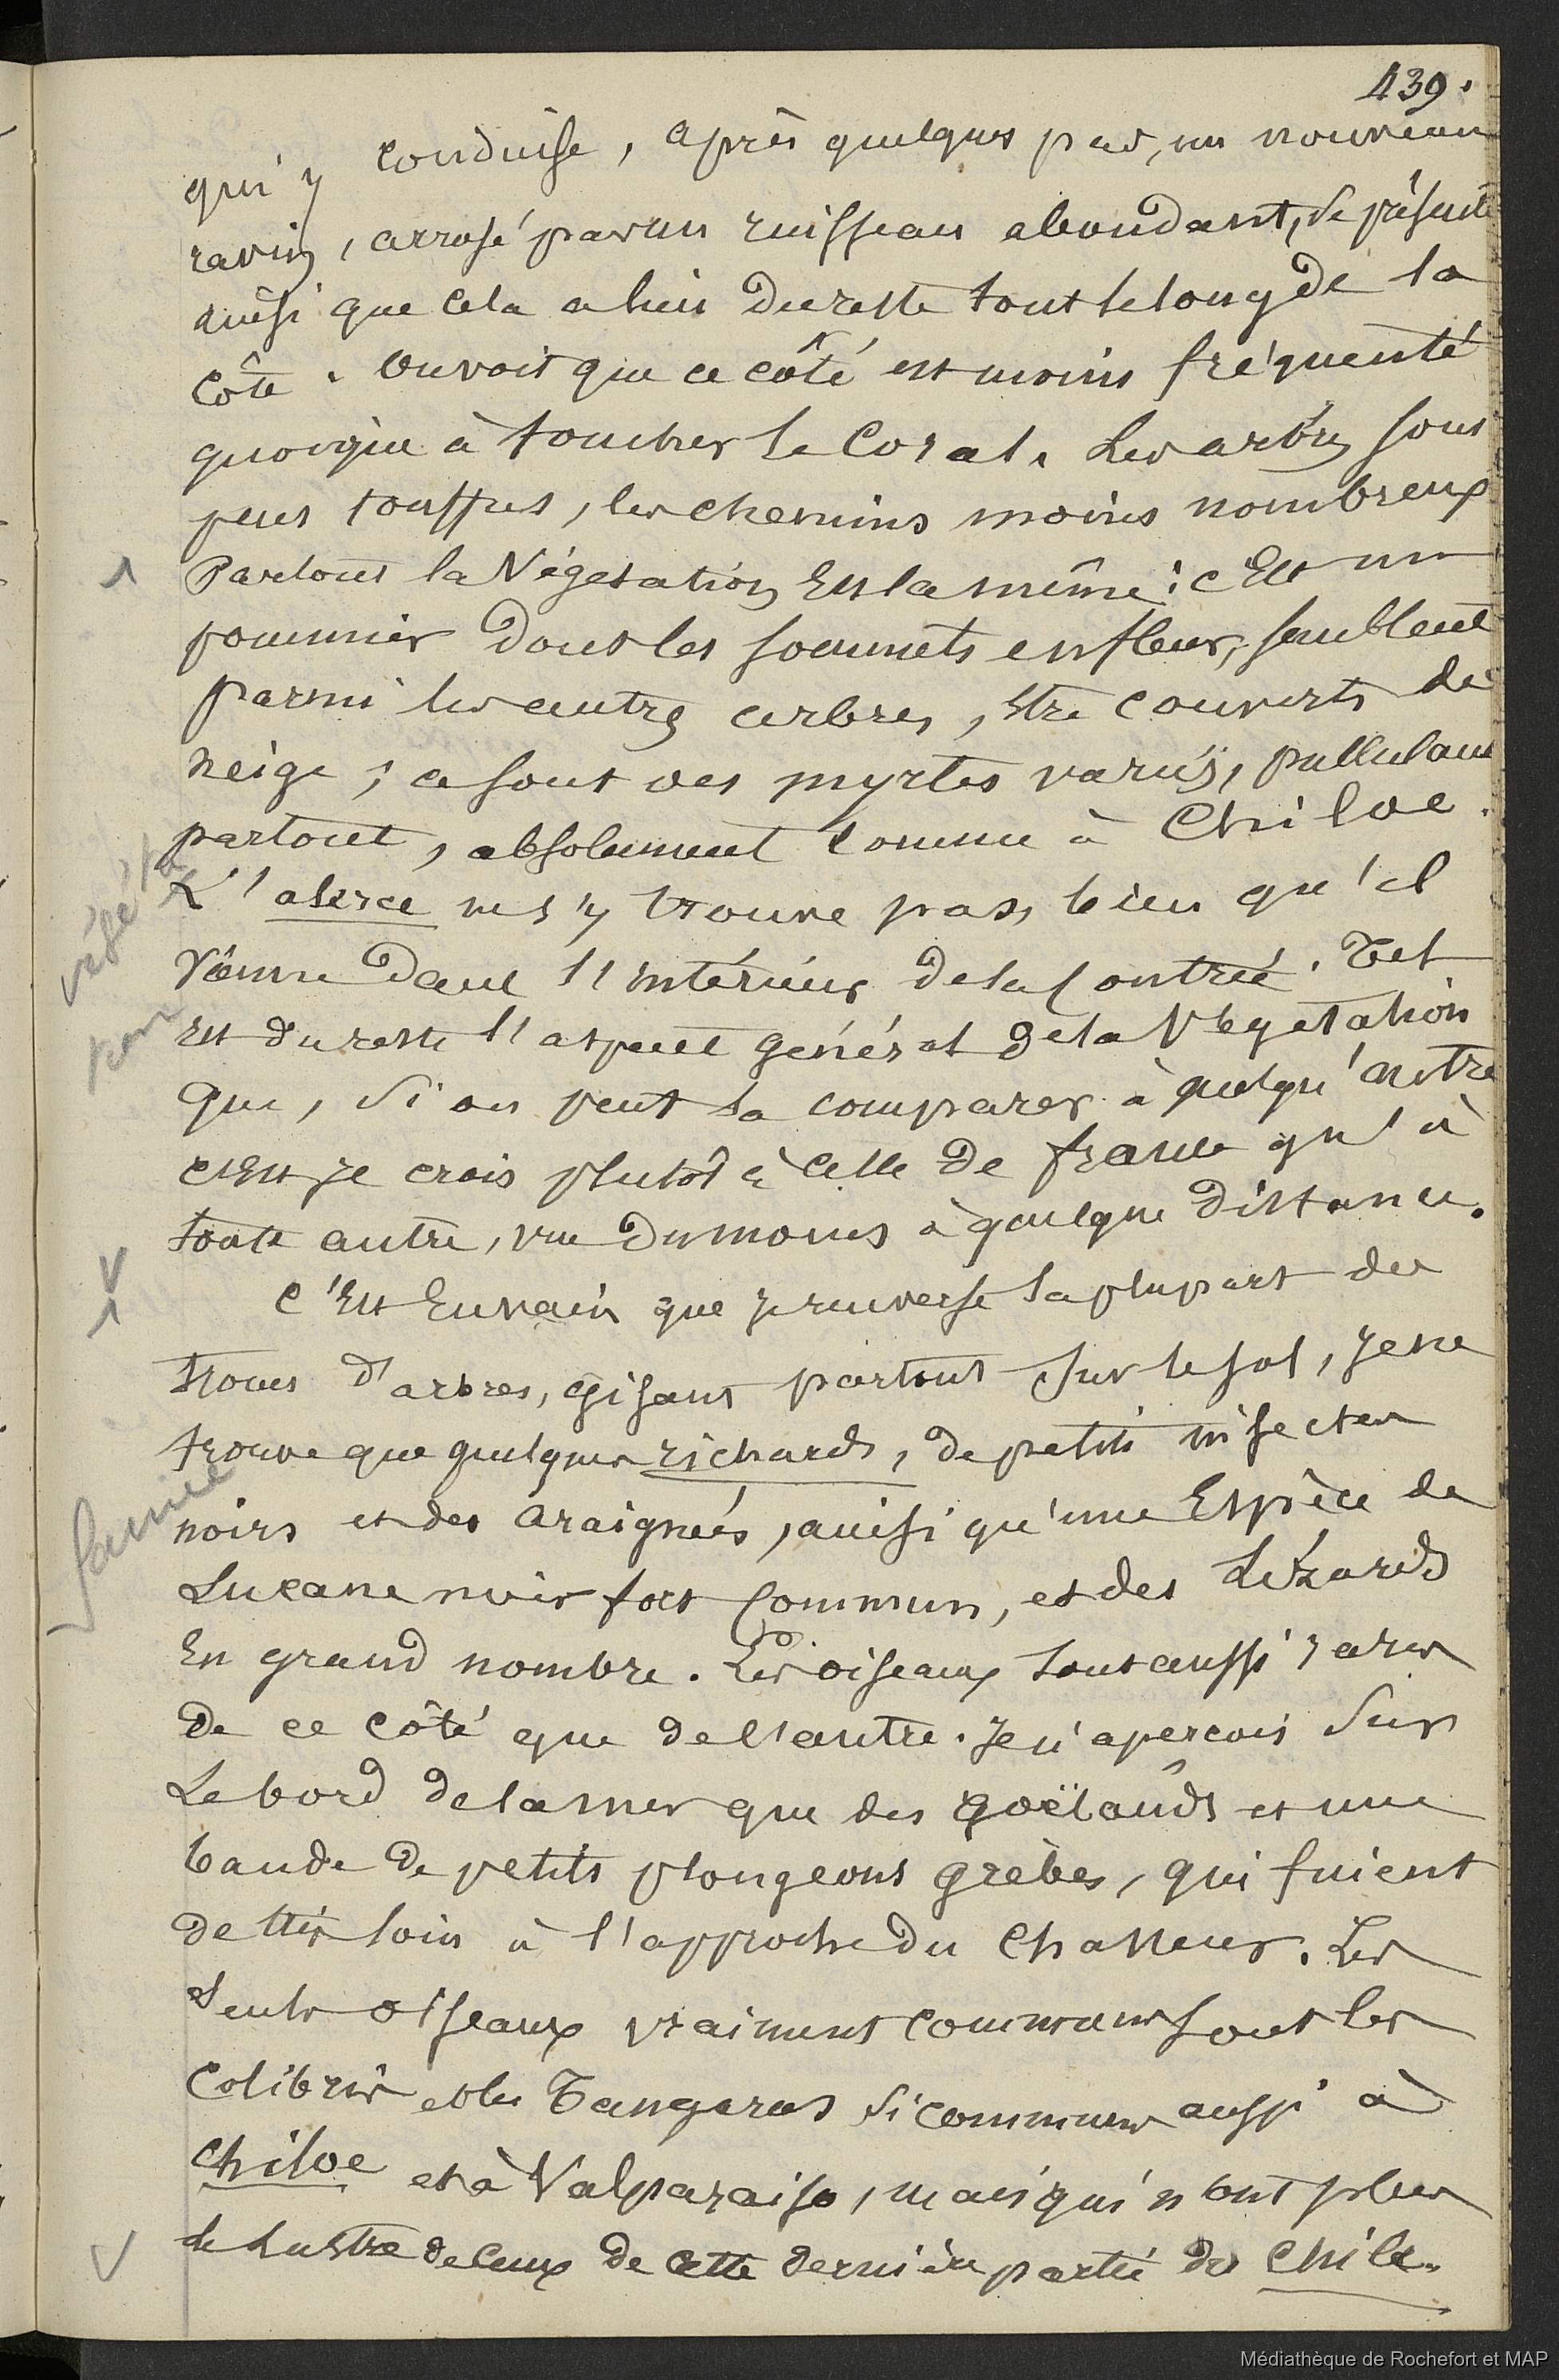 439.
qui y conduise, après quelques pas, un nouveau
ravin, arrosé par un ruisseau abondant, se présente
ainsi que cela a lieu du reste tout le long de la
Côte. On voit que ce côté est moins fréquenté
quoique à toucher le Coral. Les arbres sont
peu touffus, les chemins moins nombreux
Partout la Végétation Est la même : c'Est un
pommier dont les sommets en fleur, semblent
parmi les autres arbres, Etre couverts de
neige ; ce sont des myrtes variés, pullulant
partout, absolument comme à Chiloe.
L'alerce ne s'y trouve pas, bien qu'il
vienne dans l'intérieur de la Contrée. Tel
Est du reste l'aspect général de la Végétation
Que, Si on peut la comparer à quelqu'autre
c'Est je crois plutôt à Celle De france qu'à
toute autre, vue Du moins à quelque Distance.
C'Est En vain que je renverse la plupart des
troncs d'arbres, gisant partout Sur le sol, Je ne
trouve que quelques richards, de petits insectes
noirs et des Araignées, ainsi qu'une Espèce de
Lucane noir fort Commun, et des Lézards
En grand nombre. Les oiseaux sont aussi rares
De ce Côté que de l'autre. Je n'apercois Sur
Le bord De la mer que des goëlands et une
bande De petits plongeons grèbes, qui fuient
de très loin à l'approche Du Chasseur. Les
Seuls oiseaux vraiment Communs sont les
Colibris et les Tangaras Si communs aussi à
Chiloe et à Valparaiso, mais qui n'ont plus
le Lustre de Ceux De Cette dernière partie du Chile.
végéta
tion
faune